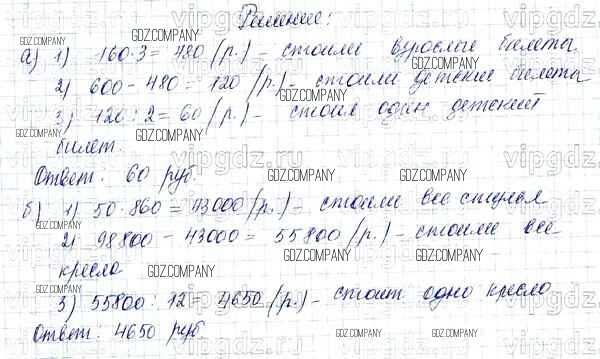 Решение:
а) 1) 160·3 = 480 (р.) – стоили взрослые билеты.
2) 600 – 480 = 120 (р.) – стоили детские билеты
3) 120 : 2 = 60 (р.) – стоил один детский
билет.
Ответ: 60 руб.
б) 1) 50·860 = 43000 (р.) – стоили все стулья
2) 98800 – 43000 = 55800 (р.) – стоили все
кресла
3) 55800 : 12 = 4650 (р.) – стоит одно кресло
Ответ: 4650 руб.
GDZ.COMPANY
vipgdz.ru